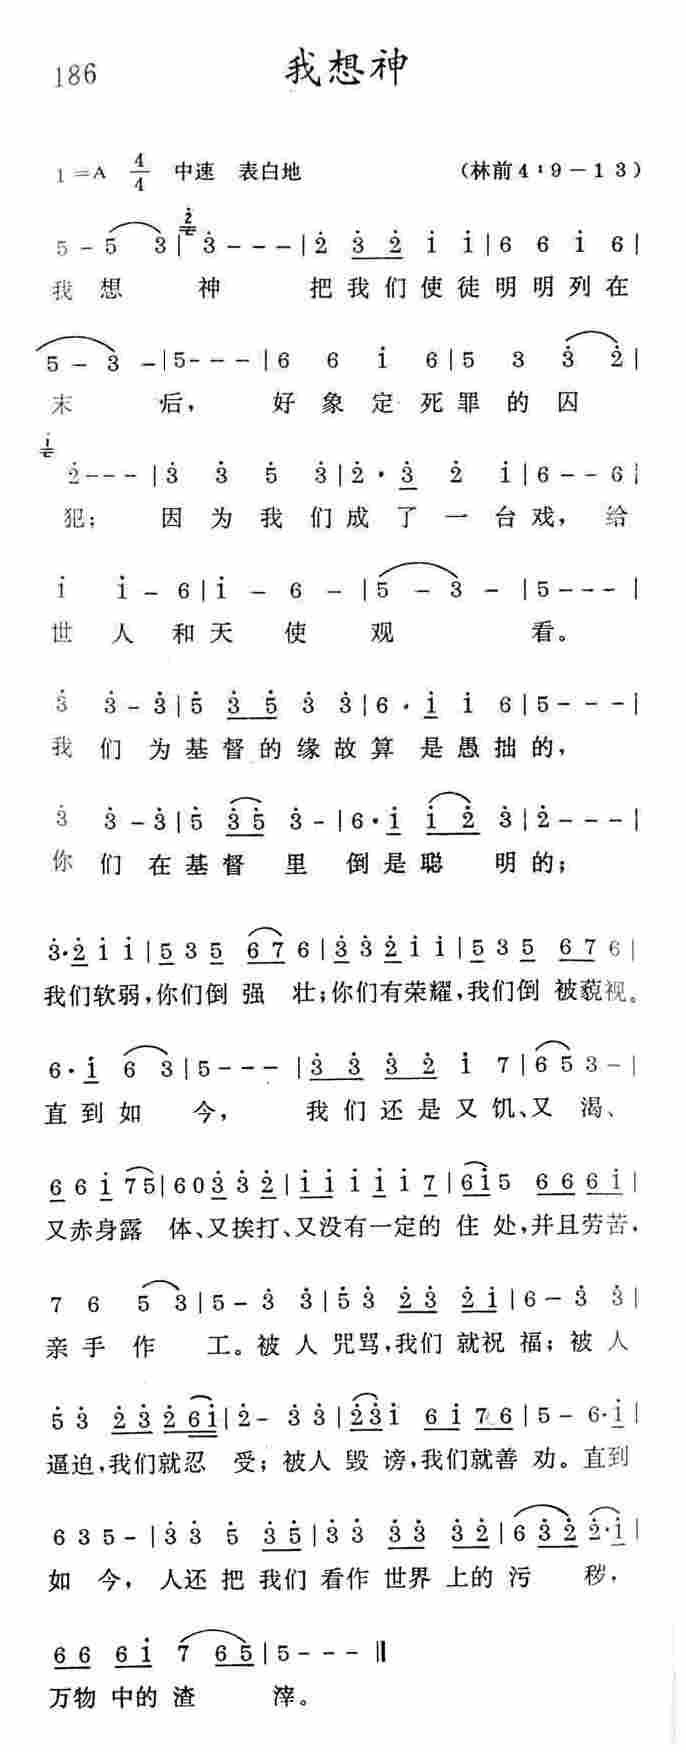 186
我想神
1=A 4/4 中速 表白地 (林前4:9-13)
5 - 5 3 | 3 - - - | 2 3 2 i i | 6 6 i 6 |
我想神 把我们使徒明明列在
5 - 3 - | 5 - - - | 6 6 i 6 | 5 3 3 2 |
末后，好象定死罪的囚
2 - - - | 3 3 5 3 | 2 · 3 2 i | 6 - - 6 |
犯；因为我们成了一台戏，给
i i - 6 | i - 6 - | 5 - 3 - | 5 - - - |
世人和天使观看。
3 3 - 3 | 5 3 5 3 3 | 6 · i i 6 | 5 - - - |
我们为基督的缘故算是愚拙的，
3 3 - 3 | 5 3 5 3 - | 6 · i i 2 3 | 2 - - - |
你们在基督里倒是聪明的；
3 · 2 i i | 5 3 5 6 7 6 | 3 3 2 i i | 5 3 5 6 7 6 |
我们软弱，你们倒强壮；你们有荣耀，我们倒被藐视。
6 · i 6 3 | 5 - - - | 3 3 3 2 i 7 | 6 5 3 - |
直到如今，我们还是又饥、又渴、
6 6 i 7 5 | 6 0 3 3 2 | i i i i i 7 | 6 i 5 6 6 6 i |
又赤身露体、又挨打、又没有一定的住处，并且劳苦，
7 6 5 3 | 5 - 3 3 | 5 3 2 3 2 i | 6 - 3 3 |
亲手作工。被人咒骂，我们就祝福；被人
5 3 2 3 2 6 i | 2 - 3 3 | 2 3 i 6 i 7 6 | 5 - 6 · i |
逼迫，我们就忍受；被人毁谤，我们就善劝。直到
6 3 5 - | 3 3 5 3 5 | 3 3 3 3 3 2 | 6 3 2 2 · i |
如今，人还把我们看作世界上的污秽，
6 6 6 i 7 6 5 | 5 - - - ‖
万物中的渣滓。